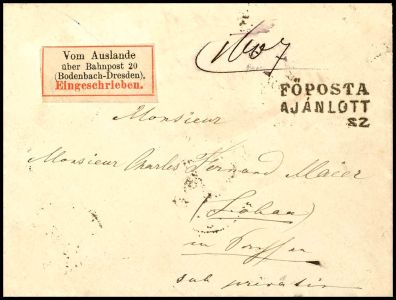 Vom Auslande
über Bahnpost 20
(Bodenbach-Dresden).
Eingeschrieben.
FŐPOSTA
AJÁNLOTT
SZ
Monsieur
Monsieur Charles Fernand Maier
(Löbau)
in
sub